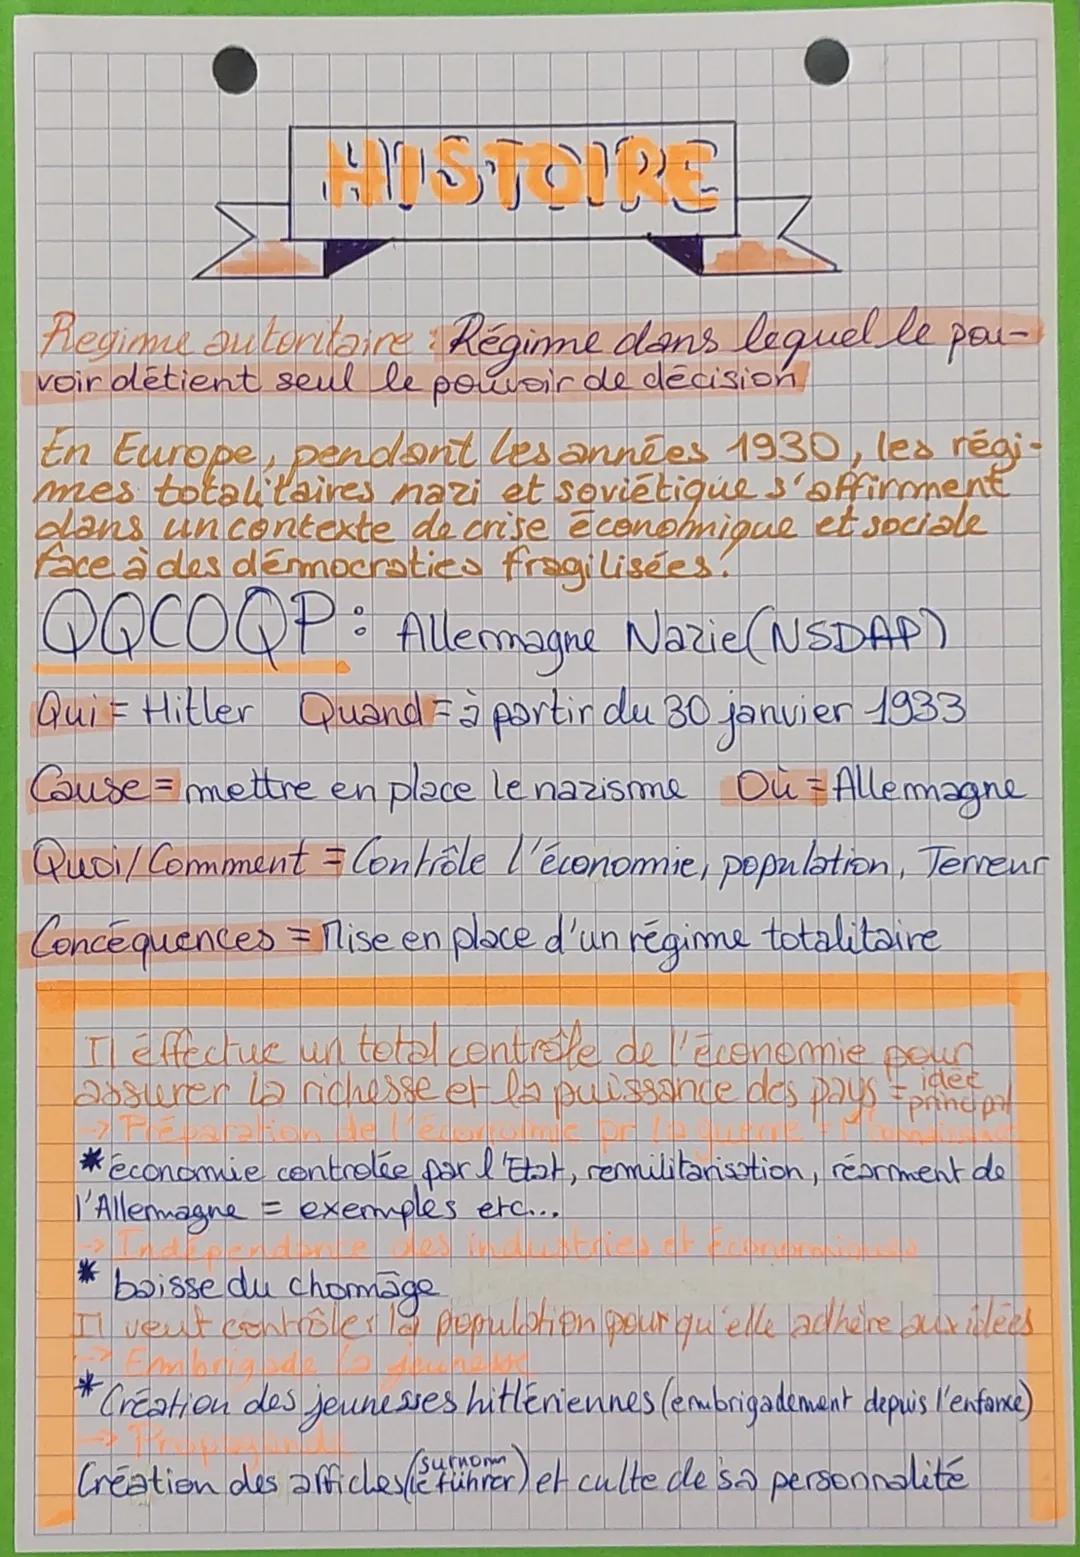 HISTOIRE
Regime autoritaire : Régime dans lequel le pou-
voir détient seul le pouvoir de décision
En Europe, pendant les années 1930, les régi-
mes totalitaires nazi et soviétique s'affirment
dans un contexte de crise économique et sociale
face à des démocraties fragilisées.
QQCOQP : Allemagne Nazie (NSDAP)
Qui = Hitler Quand = à partir du 30 janvier 1933
Cause = mettre en place le nazisme Où = Allemagne
Quoi/Comment = Contrôle l'économie, population, Terreur
Concéquences = Mise en place d'un régime totalitaire
Il éffectue un total contrôle de l'économie pour
assurer la richesse et la puissance des pays = idée principal
-> Préparation de l'économie pr la guerre
* économie controlée par l'Etat, remilitarisation, réarment de
l'Allemagne = exemples etc...
-> Indépendance des industries et économiques
* baisse du chomâge
Il veut contrôler la population pour qu'elle adhère aux idées
-> Embrigade la jeunesse
* Création des jeunesses hitlériennes (embrigadement depuis l'enfance)
-> Propagande
Création des affiches (surnom le führer) et culte de sa personnalité